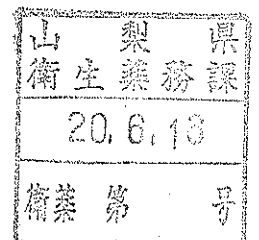 山梨県
衛生薬務課
20.6.18
衛薬第　　号